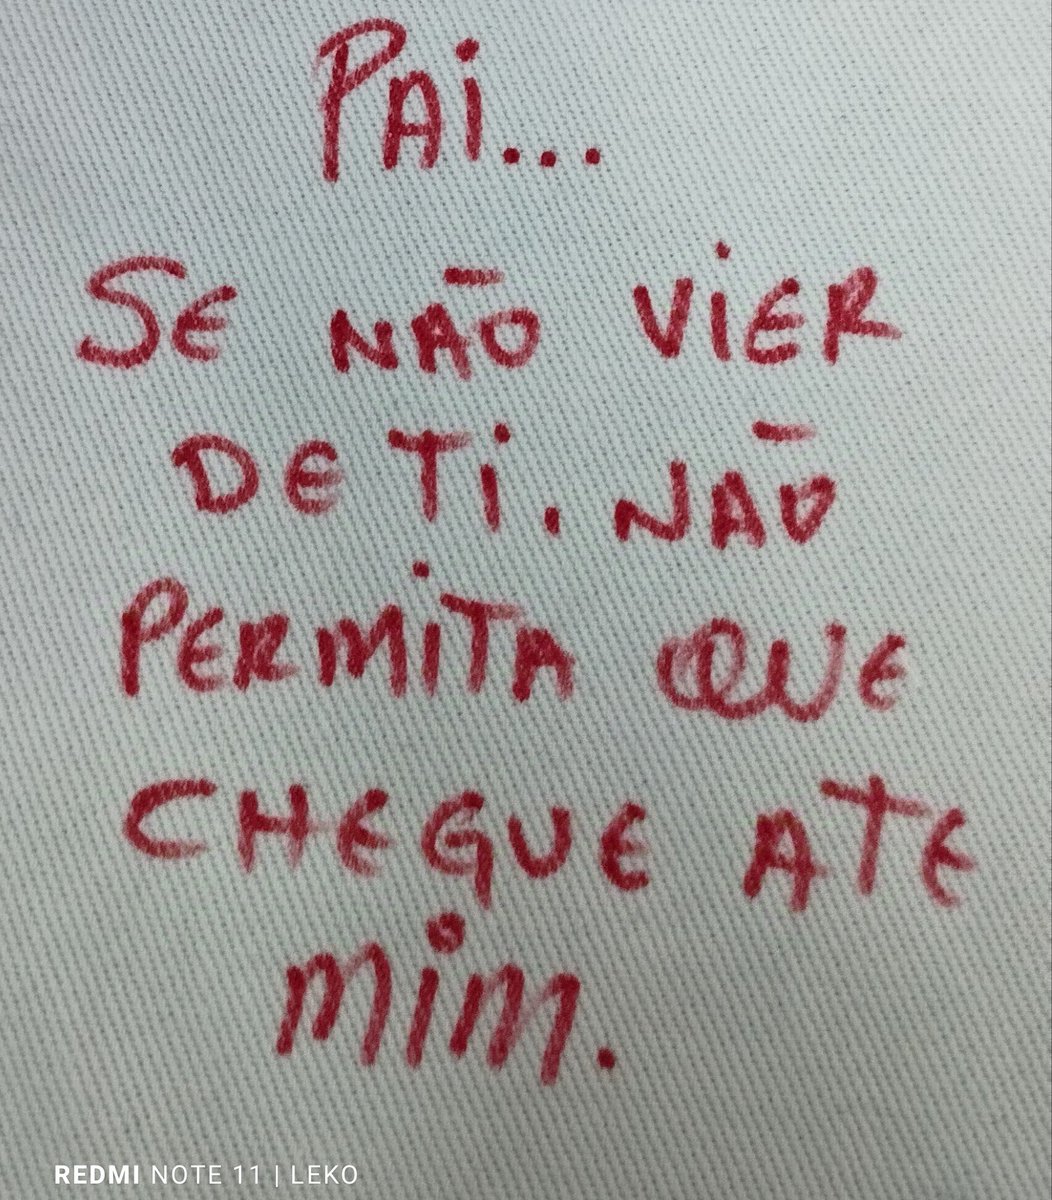 PAi...
SE NÃO ViER
DE Ti. NÃO
PERMiTA QUE
CHEGUE ATE
MiM.
REDMI NOTE 11 | LEKO